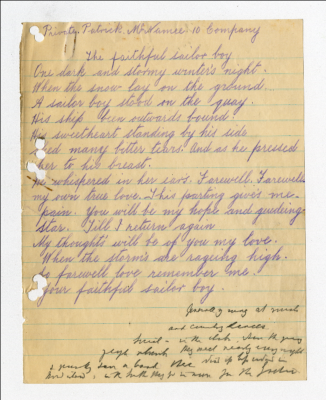 Private Patrick McNamee 10 Company
The faithful sailor boy
One dark and stormy winter's night.
When the snow lay on the ground
A sailer boy stood on the quay.
His ship been outwards bound.
His sweetheart standing by his side
many bitter tears. And as he pressed
her to his breast.
He whispered in her ears. Farewell. Farewell
my own true love. This parting gives me
pain. You will be my hope and guiding
star. Till I return again
My thoughts will be of you my love.
When the storms are rageing high.
So farewell love remember me.
Your faithful sailor boy.
and country dances.
the young
people
nearly every night
a band